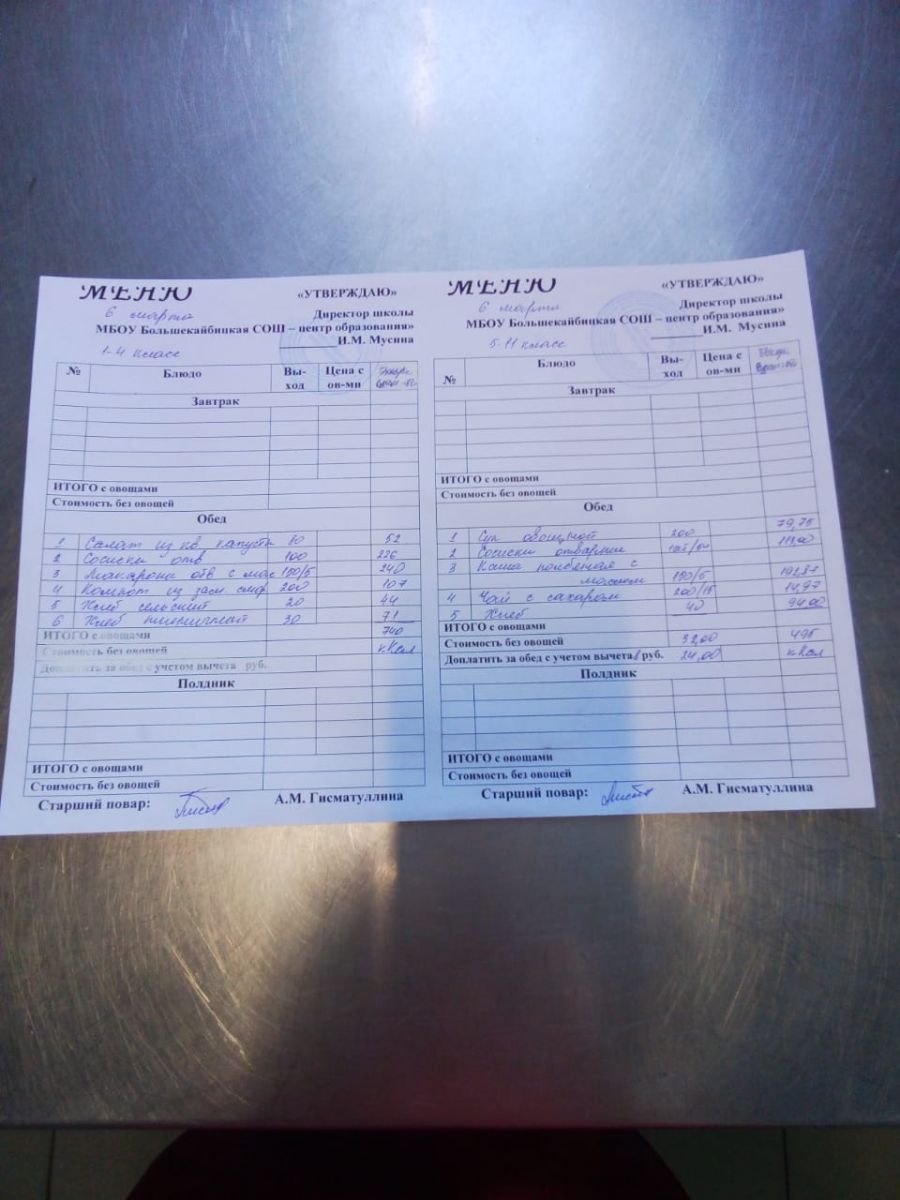 МЕНЮ
«УТВЕРЖДАЮ»
6 марта
Директор школы
МБОУ Большекайбицкая СОШ – центр образования»
И.М. Мусина
1-4 класс
№ Блюдо Вы-ход Цена с ов-ми
Завтрак
ИТОГО с овощами
Стоимость без овощей
Обед
1 Салат из кв. капусты 80 52
2 Сосиски отв 100 226
3 Макароны отв с мас 150/5 240
4 Компот из засм смор 200 107
5 Хлеб сельский 20 44
6 Хлеб пшеничный 30 71
ИТОГО с овощами 740
Стоимость без овощей кКал
Доплатить за обед с учетом вычета руб.
Полдник
ИТОГО с овощами
Стоимость без овощей
Старший повар: А.М. Гисматуллина
МЕНЮ
«УТВЕРЖДАЮ»
6 марта
Директор школы
МБОУ Большекайбицкая СОШ – центр образования»
И.М. Мусина
5-11 класс
№ Блюдо Вы-ход Цена с ов-ми
Завтрак
ИТОГО с овощами
Стоимость без овощей
Обед
1 Суп овощной 200 79,75
2 Сосиски отварные
3 Каша с
маслом 150/5 192,87
4 Чай с сахаром 200/15 14,97
5 Хлеб 40 94,00
ИТОГО с овощами
Стоимость без овощей 32,00 495
Доплатить за обед с учетом вычета руб. 24,00 кКал
Полдник
ИТОГО с овощами
Стоимость без овощей
Старший повар: А.М. Гисматуллина